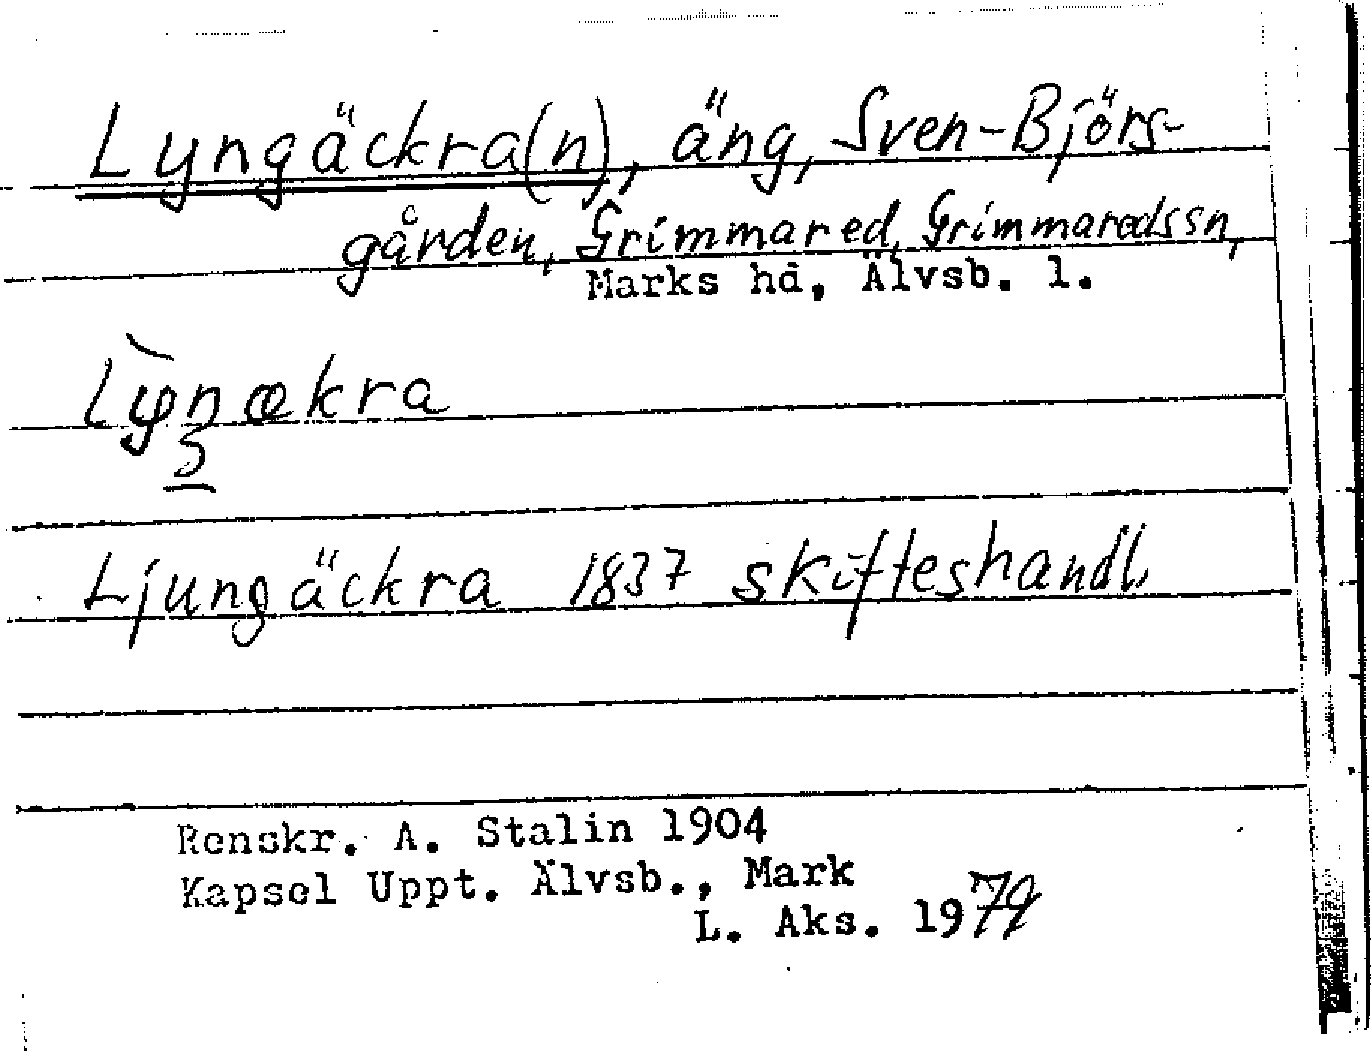 Lyngäckra(n), äng, Sven-Björs-
gården, Grimmared, Grimmaredssn,
Marks hd, Älvsb. l.
Ljungäckra 1837 skifteshandl.
Renskr. A. Stalin 1904
Kapsel Uppt. Älvsb., Mark
L. Aks. 1979